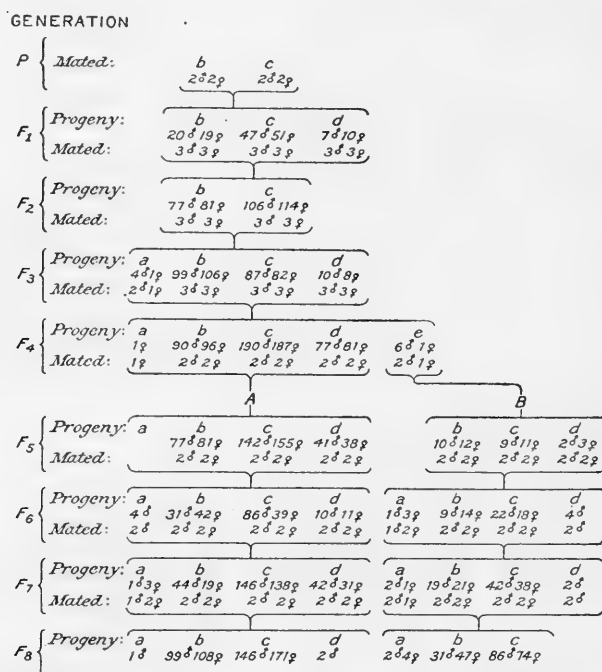 GENERATION
P { Mated: b c
2♂2♀ 2♂2♀
F1 { Progeny: b c d
20♂19♀ 47♂51♀ 7♂10♀
Mated: 3♂3♀ 3♂3♀ 3♂3♀
F2 { Progeny: b c
77♂81♀ 106♂114♀
Mated: 3♂3♀ 3♂3♀
F3 { Progeny: a b c d
4♂1♀ 99♂106♀ 87♂82♀ 10♂8♀
Mated: 2♂1♀ 3♂3♀ 3♂3♀ 3♂3♀
F4 { Progeny: a b c d e
1♀ 90♂96♀ 190♂187♀ 77♂81♀ 6♂1♀
Mated: 1♀ 2♂2♀ 2♂2♀ 2♂2♀ 2♂1♀
A B
F5 { Progeny: a b c d b c d
77♂81♀ 142♂155♀ 41♂38♀ 10♂12♀ 9♂11♀ 2♂3♀
Mated: 2♂2♀ 2♂2♀ 2♂2♀ 2♂2♀ 2♂2♀ 2♂2♀
F6 { Progeny: a b c d a b c d
4♂ 31♂42♀ 86♂39♀ 10♂11♀ 1♂3♀ 9♂14♀ 22♂18♀ 4♂
Mated: 2♂ 2♂2♀ 2♂2♀ 2♂2♀ 1♂2♀ 2♂2♀ 2♂2♀ 2♂
F7 { Progeny: a b c d a b c d
1♂3♀ 44♂19♀ 146♂138♀ 42♂31♀ 2♂1♀ 19♂21♀ 42♂38♀ 2♂
Mated: 1♂2♀ 2♂2♀ 2♂2♀ 2♂2♀ 2♂1♀ 2♂2♀ 2♂2♀ 2♂
F8 { Progeny: a b c d a b c
1♂ 99♂108♀ 146♂171♀ 2♂ 2♂4♀ 31♂47♀ 86♂74♀